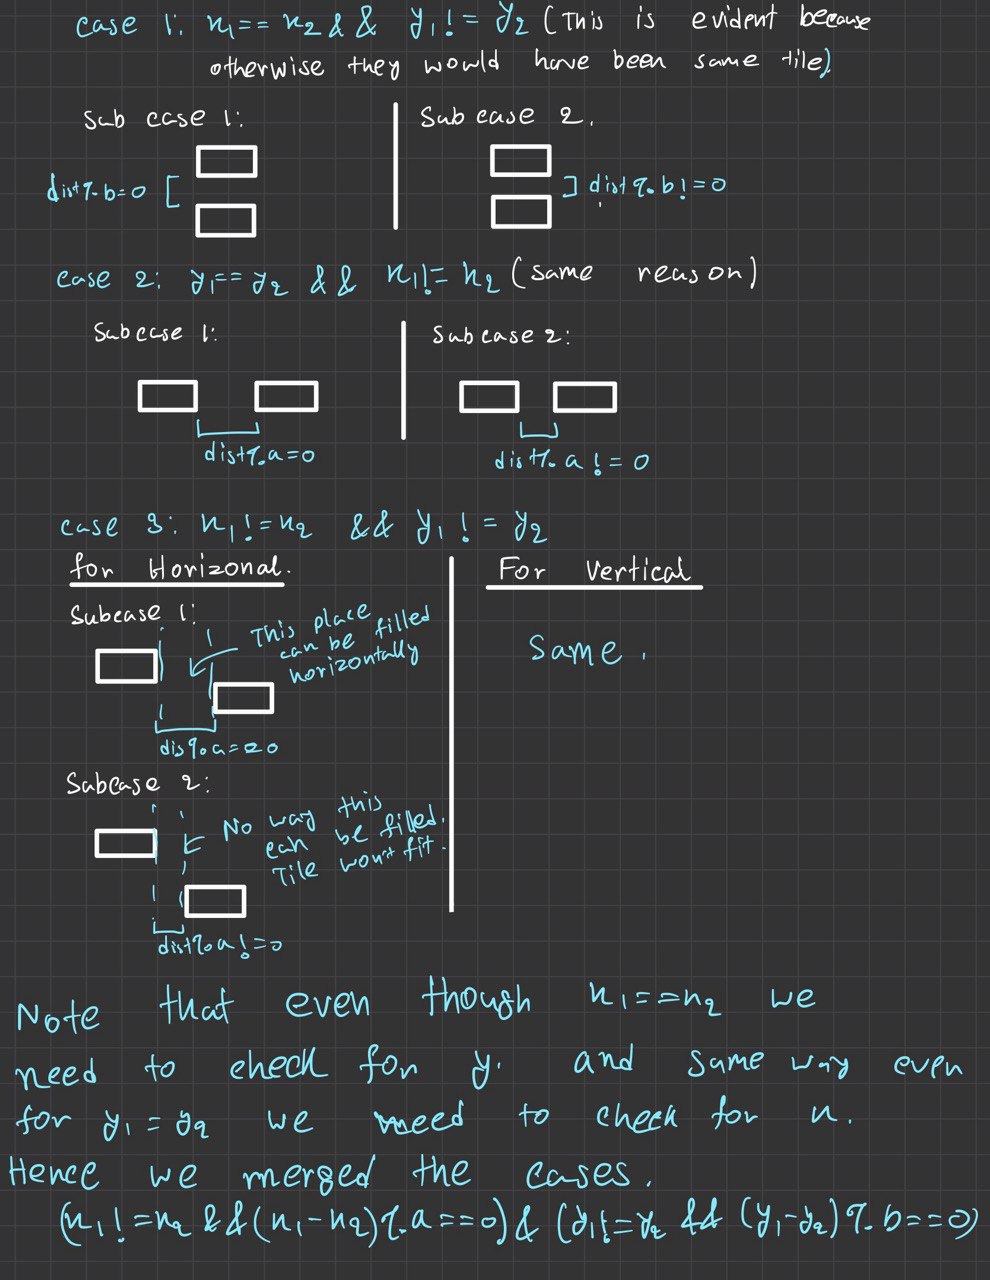 case 1: x1 == x2 && y1 != y2 (This is evident because
otherwise they would have been same tile)
Sub case 1:
dist % b = 0
Sub case 2.
dist % b != 0
case 2: y1 == y2 && x1 != x2 (same reason)
Subcase 1:
dist % a = 0
Subcase 2:
dist % a != 0
case 3: x1 != x2 && y1 != y2
for Horizonal.
Subcase 1:
This place
can be filled
horizontally
dis % a == 0
Subcase 2:
No way this
can be filled.
Tile won't fit.
dist % a != 0
For Vertical
Same.
Note that even though x1 == x2 we
need to check for y. and same way even
for y1 = y2 we need to check for x.
Hence we merged the cases.
(x1 != x2 && (x1 - x2) % a == 0) & (y1 != y2 && (y1 - y2) % b == 0)